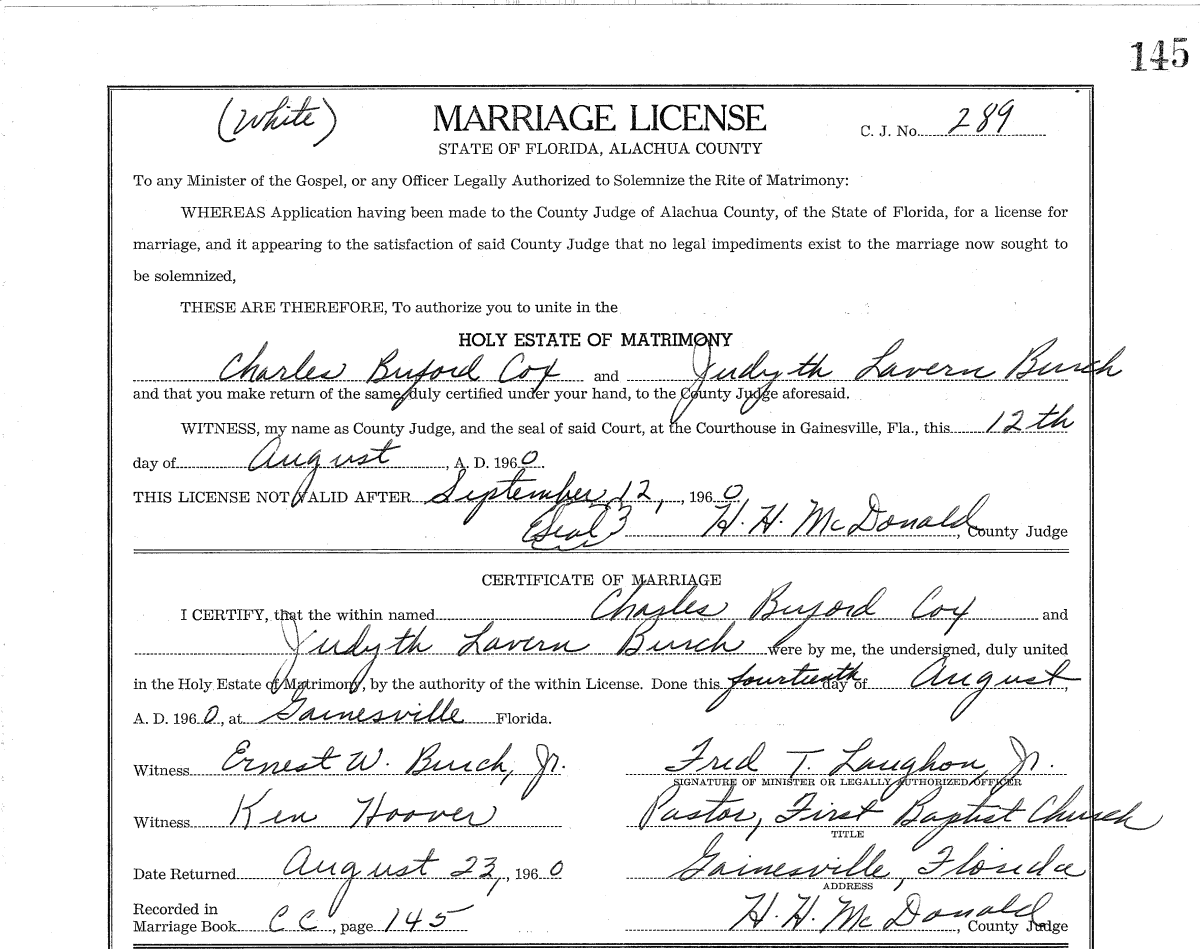 145
(White)
MARRIAGE LICENSE
C. J. No. 289
STATE OF FLORIDA, ALACHUA COUNTY
To any Minister of the Gospel, or any Officer Legally Authorized to Solemnize the Rite of Matrimony:
WHEREAS Application having been made to the County Judge of Alachua County, of the State of Florida, for a license for
marriage, and it appearing to the satisfaction of said County Judge that no legal impediments exist to the marriage now sought to
be solemnized,
THESE ARE THEREFORE, To authorize you to unite in the
HOLY ESTATE OF MATRIMONY
Charles Buford Cox and Judyth Lavern Burch
and that you make return of the same, duly certified under your hand, to the County Judge aforesaid.
WITNESS, my name as County Judge, and the seal of said Court, at the Courthouse in Gainesville, Fla., this 12th
day of August, A. D. 1960.
THIS LICENSE NOT VALID AFTER September 12, , 1960
(Seal) H. H. McDonald, County Judge
CERTIFICATE OF MARRIAGE
I CERTIFY, that the within named Charles Buford Cox and
Judyth Lavern Burch were by me, the undersigned, duly united
in the Holy Estate of Matrimony, by the authority of the within License. Done this fourteenth day of August,
A. D. 1960, at Gainesville Florida.
Witness Ernest W. Burch, Jr. Fred T. Laughon, Jr.
SIGNATURE OF MINISTER OR LEGALLY AUTHORIZED OFFICER
Witness Ken Hoover Pastor, First Baptist Church
TITLE
Date Returned August 23, , 1960 Gainesville, Florida
ADDRESS
Recorded in
Marriage Book CC, page 145 H. H. McDonald, County Judge